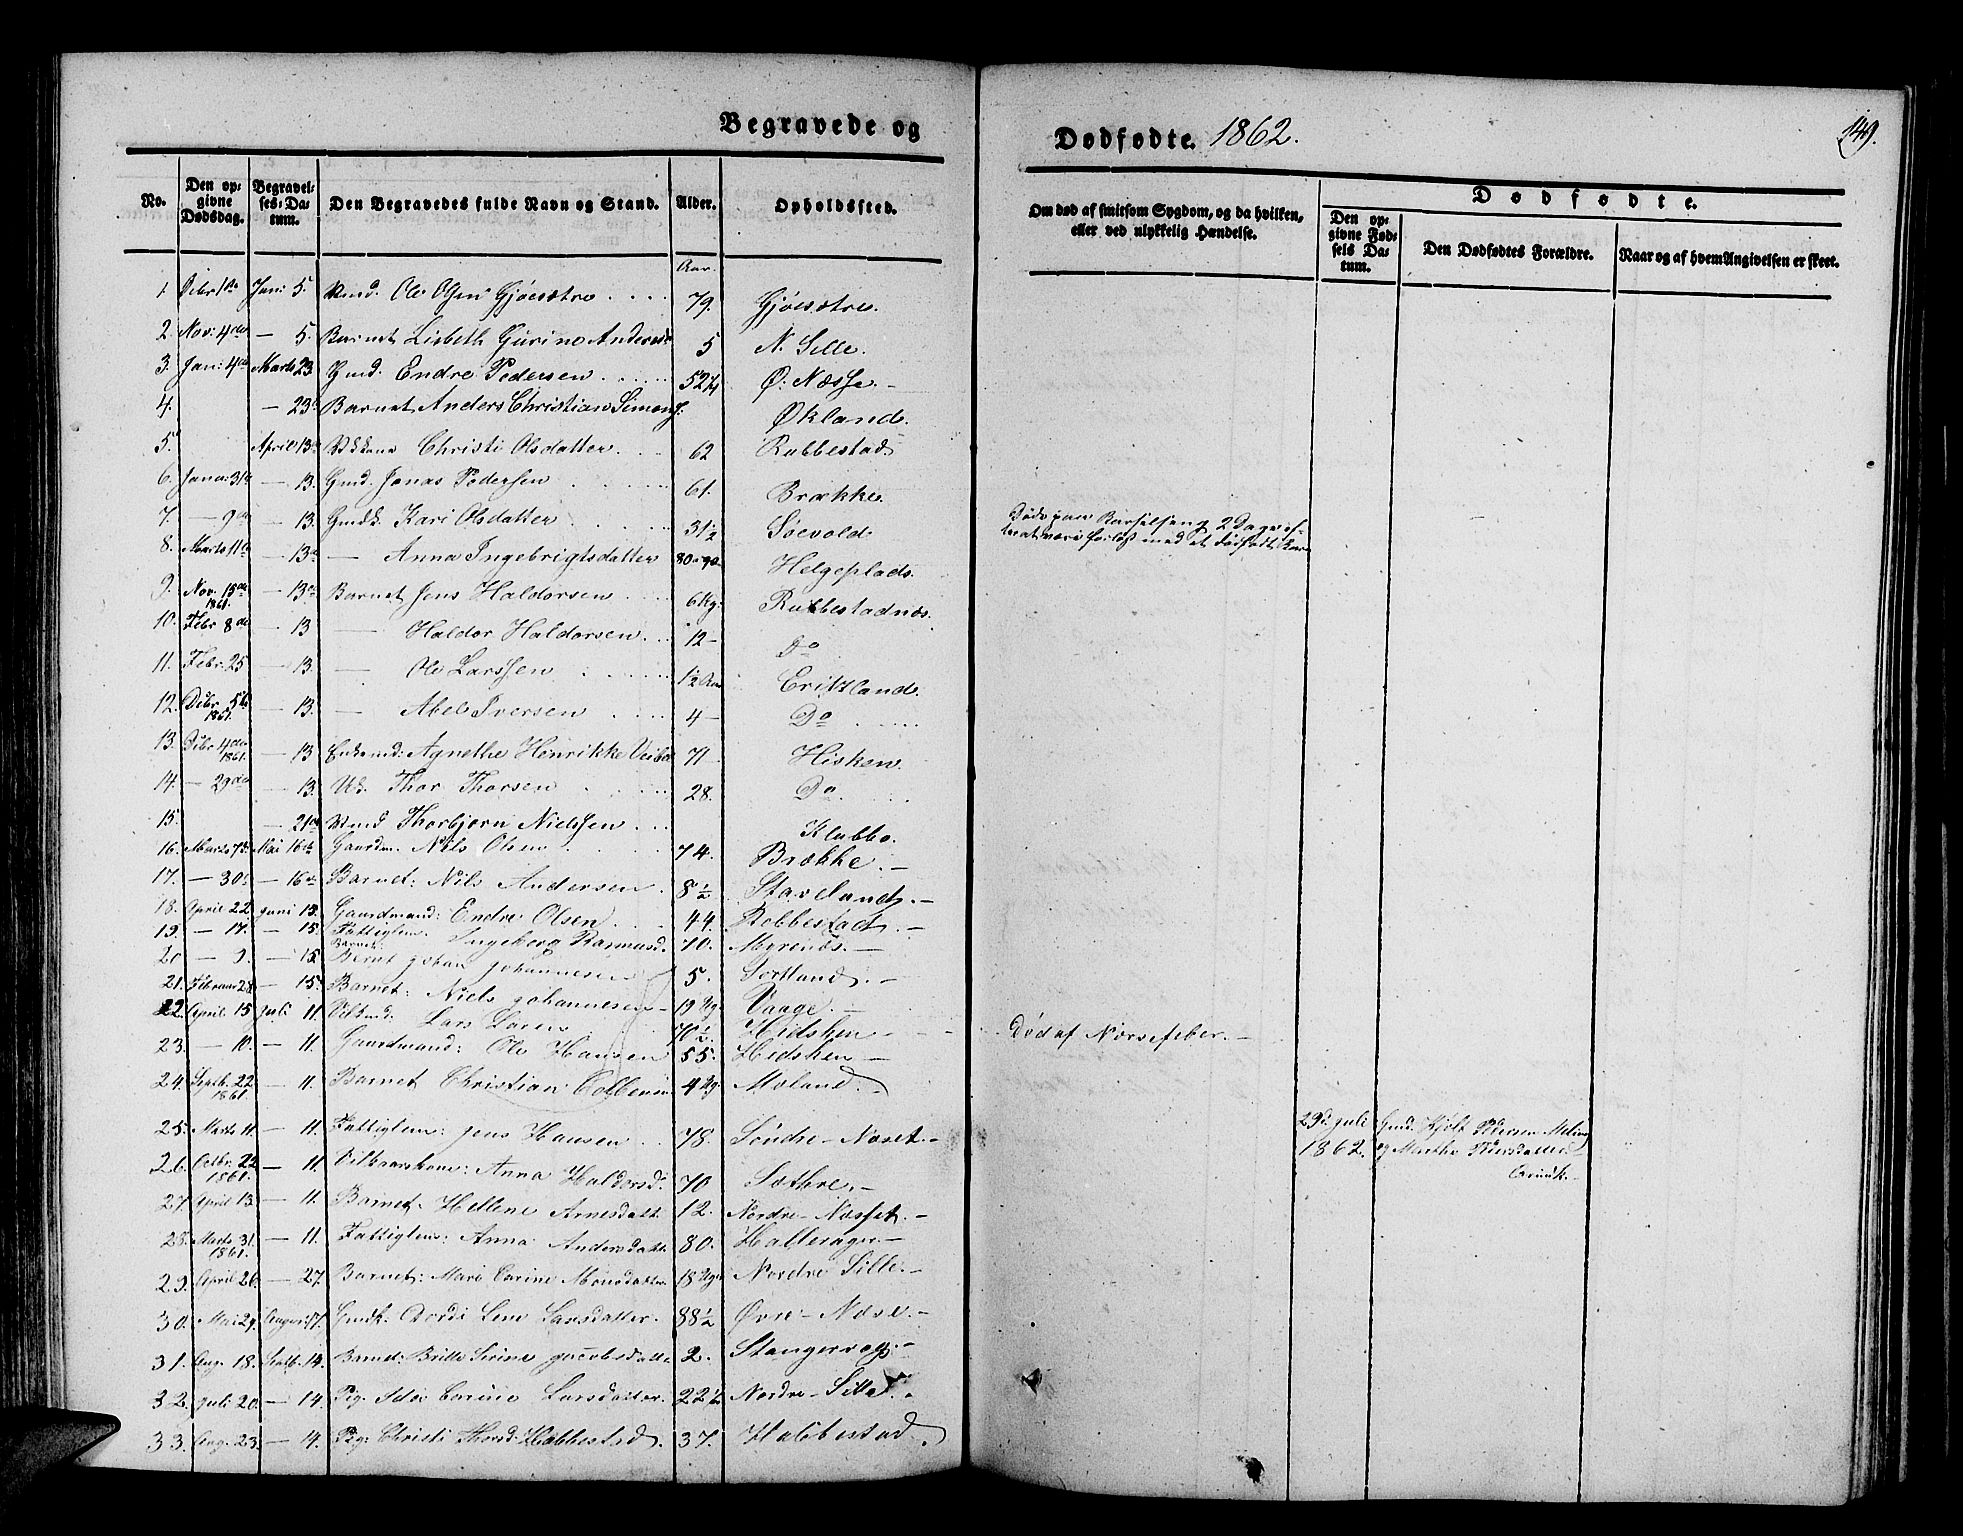 Begravede og
Dødfødte. 1862.
149.
No.
Den opgivne Dødsdag.
Begravelses-Datum.
Den Begravedes fulde Navn og Stand.
Alder.
Opholdssted.
Om død af smitsom Sygdom, og da hvilken, eller ved ulykkelig Hændelse.
Dødfødte.
Den opgivne Fødsels Datum.
Den Dødfødtes Forældre.
Naar og af hvem Angivelsen er skeet.
Aar.
1. Jan: 5. Ole Olsen Gjøesætre 79. Gjøesætre.
2. Nov: 4de — 5. Barnet Lisbeth Gurine Andersd 5 N. Sille.
3. Jan: 4de Marts 23 Gmd. Endre Pedersen 52 Ø: Næsse.
4. — 23 Barnet Anders Christian Simons. Økland.
5. April 13 Christi Olsdatter 62 Rubbestad
6. — 13. Gmd. Jonas Pedersen 61. Brække.
7. — 9de — 13. Gmdk. Kari Olsdatter 31½ Søevold
8. Marts 11te — 13 — Anna Ingebrigtsdatter 80 Helgeplads.
Døde paa Barselseng 2 Dage
9. Nov. 15de 1861. — 13 Barnet Jens Haldorsen 6 Rubbestadnæs.
10. Febr 8de — 13 — Haldor Haldorsen 12 — Do
11. Febr. 25 — 13. — Ole Larssen ½ Aar Eritzland.
12. Debr. 5te 1861. — 13. — Abel Iversen 4 — Do
13. Debr 4de 1861. — 13 Agnethe Henrikke 71 Hisken.
14. — 29de — 13. Thor Thorsen 28. Do
15. — 21de Thorbjørn Nielssen Klubbo.
16. Marts 7de Mai 16de Gaardm. Nils Olsen 74. Brække. —
17. — 30 — 16de Barnet: Nils Andersen. 8½ Staveland. —
18. April 22 Juni 13. Gaardmand: Endre Olsen 44. Robbestad. —
19. — 17. — 15. Fattiglem. Ingeborg Rasmusd. 70. Myrenæs. —
20 — 9. — 15 Barnet: Bernt Johan Johannesen 5. Sortland. —
21. Februar 28 — 15. Barnet: Niels Johannesen — 19 Ug. Vaage. —
22. April 15 Juli 11. Lars Larsen 70½ Hidsken —
Død af Nervefeber. —
23. — 10. — 11. Gaardmand: Ole Hansen 55. Hidsken —
24. Septb. 22. 1861. — 11. Barnet Christian 4 Ug. Moland.
25. Marts 11. — 11. Fattiglem: Jens Hansen 78. Søndre-Næset. —
29de Juli 1862. Gmd. Pedersen og Marthe
26. Octbr. 22 1861. — 11. Anna Haldorsd. 70 Sæthre. —
27. April 13. — 11. Barnet. Hellene Arnesdatt. 12. Nordre-Næsset. —
28. Marts 31. 1861. — 11. Fattiglem: Anna Andersdatt. 80. Hallesager —
29. April 26. — 27. Barnet: Mari Carine Monsdatter. 18 Uger Nordre Sille. —
30. Mai 29. August 17. Gmdk. Dordi Lene Larsdatter. 38½ Øvre-Næse. —
31. Aug. 18. Septb. 14. Barnet: Britte Serine Jacobsdatte 2. Stangervag. —
32. Juli 20. — 14. Pig. Ida Carine Larsdatter 22½ Nordre-Sille.
33. Aug. 23. — 14. Pig: Christi Thorsd. Habbestad. 37. Habbestad.